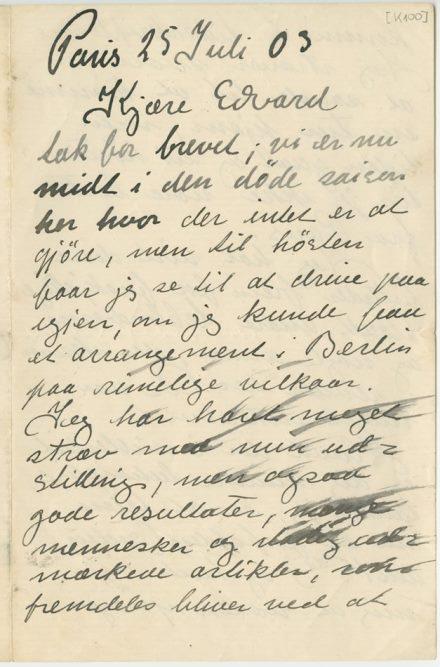 [K100]
Paris 25 Juli 03
Kjære Edvard
tak for brevet; vi er nu
midt i den döde saison
her hvor der intet er at
gjöre, men til hösten
faar jeg se til at drive paa
igjen, om jeg kunde faa
et arrangement i Berlin
paa rimelige vilkaar.
Jeg har havt meget
stræv med min ud=
stilling, men ogsaa
gode resultater, mange
mennesker og ud=
mærkede artikler, som
fremdeles bliver ved at